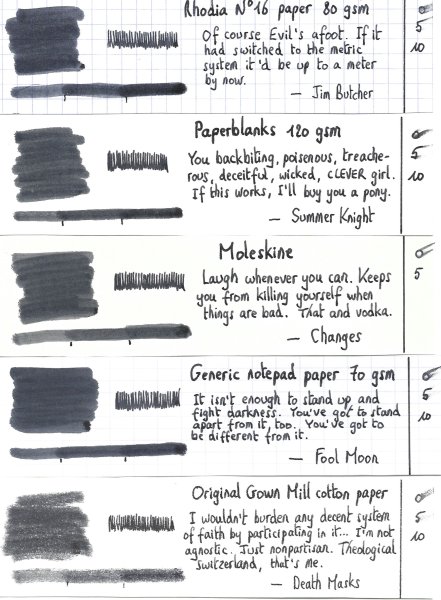 Rhodia N°16 paper 80 gsm
Of course Evil's afoot. If it
had switched to the metric
system it'd be up to a meter
by now.
— Jim Butcher
5
10
Paperblanks 120 gsm
You backbiting, poisenous, treache-
rous, deceitful, wicked, CLEVER girl.
If this works, I'll buy you a pony.
— Summer Knight
5
10
Moleskine
Laugh whenever you can. Keeps
you from killing yourself when
things are bad. That and vodka.
— Changes
5
Generic notepad paper 70 gsm
It isn't enough to stand up and
fight darkness. You've got to stand
apart from it, too. You've got to
be different from it.
— Fool Moon
5
10
Original Crown Mill cotton paper
I wouldn't burden any decent system
of faith by participating in it... I'm not
agnostic. Just nonpartisan. Theological
Switzerland, that's me.
— Death Masks
5
10